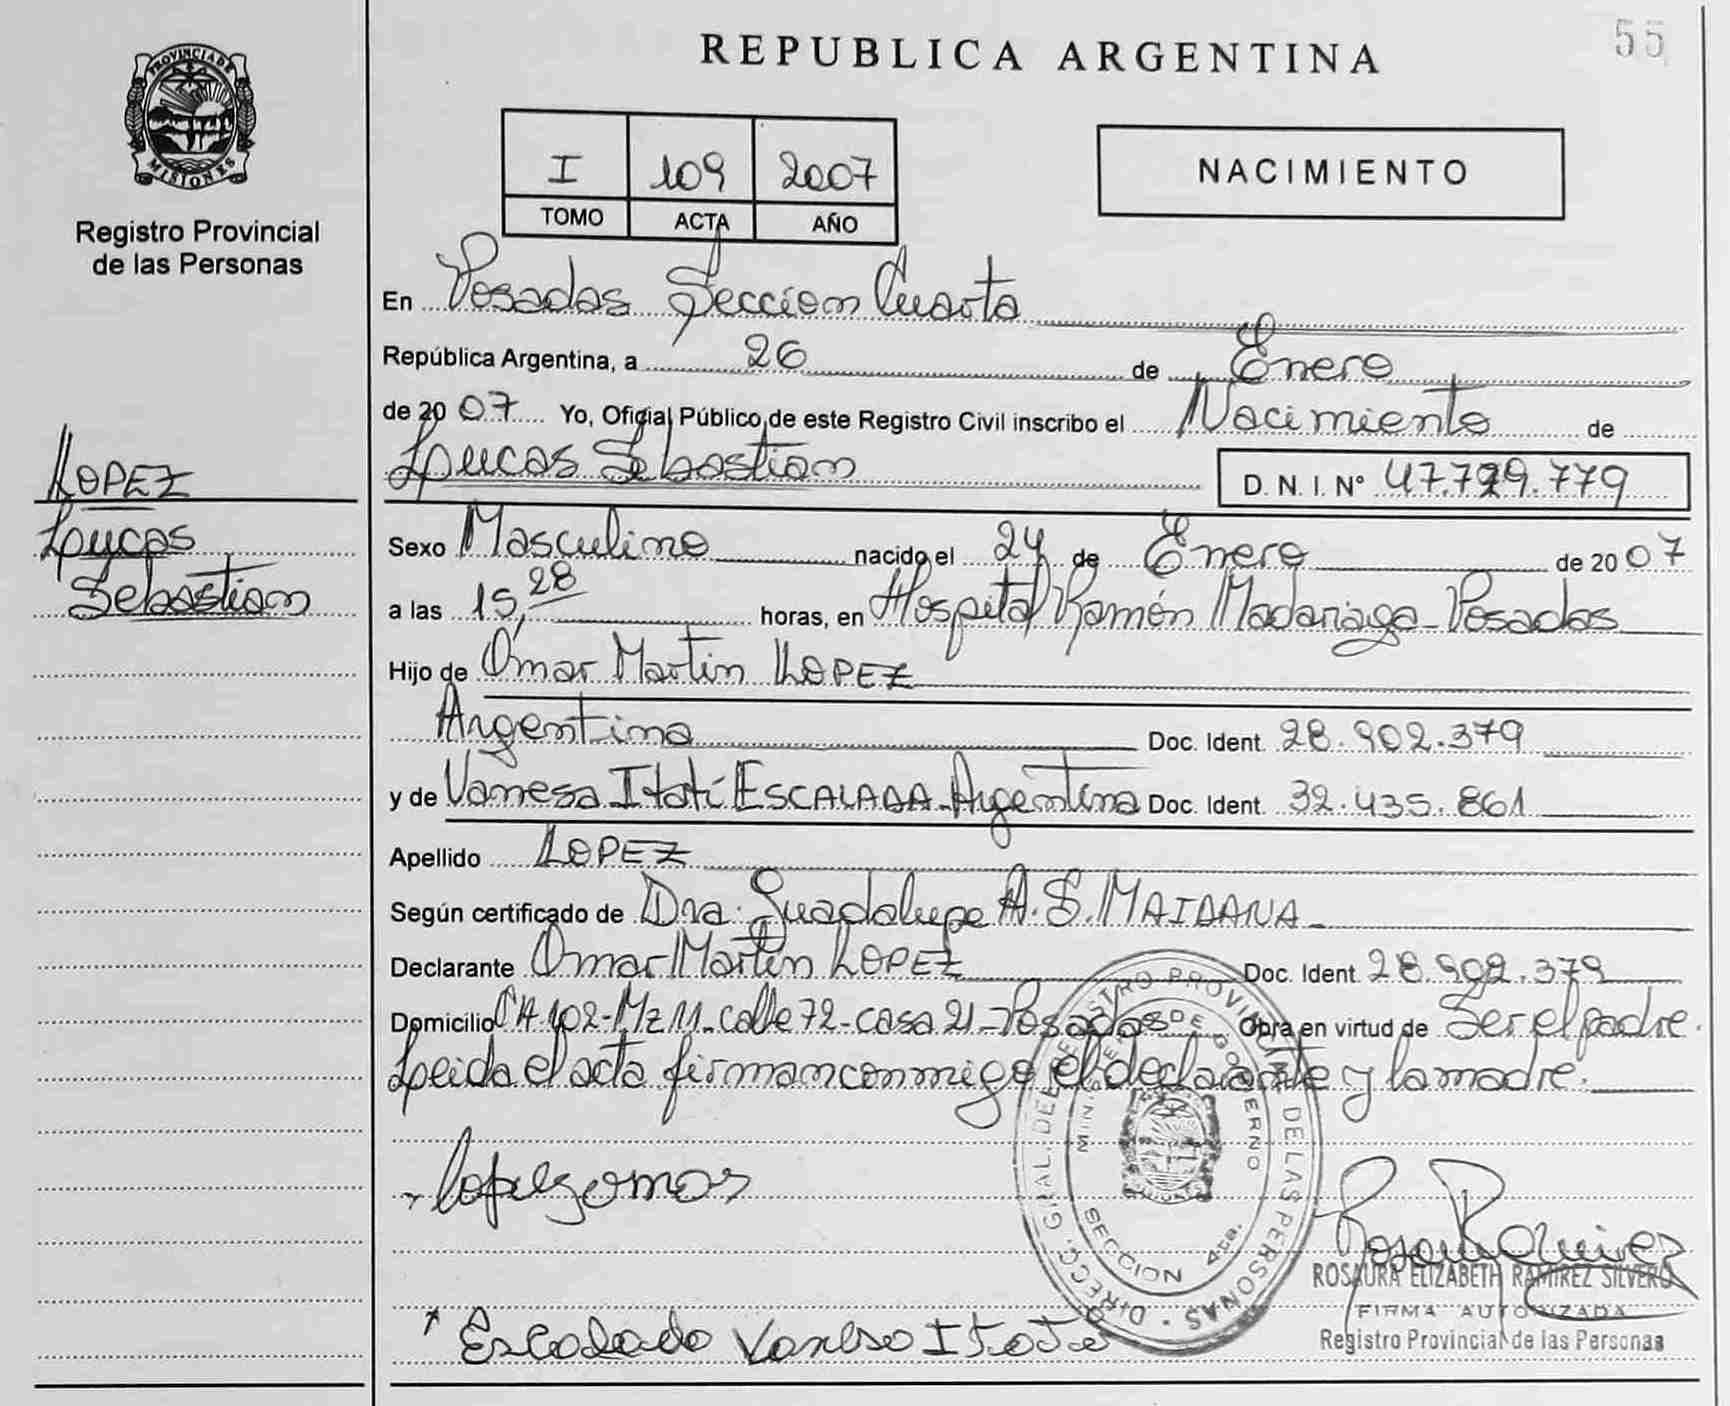 55
REPUBLICA ARGENTINA
PROVINCIA DE
MISIONES
Registro Provincial
de las Personas
I 109 2007
TOMO ACTA AÑO
NACIMIENTO
En Posadas Sección Cuarta
República Argentina, a 26 de Enero
de 2007 Yo, Oficial Público de este Registro Civil inscribo el Nacimiento de
Lucas Sebastian D. N. I. Nº 47.729.779
LOPEZ
Lucas
Sebastian
Sexo Masculino nacido el 24 de Enero de 2007
a las 15,28 horas, en Hospital Ramón Madariaga - Posadas
Hijo de Omar Martin LOPEZ
Argentina Doc. Ident. 28.902.379
y de Vanesa Itatí ESCALADA - Argentina Doc. Ident. 32.435.861
Apellido LOPEZ
Según certificado de Dra. Guadalupe A. S. MAIDANA
Declarante Omar Martin LOPEZ Doc. Ident. 28.902.379
Domicilio CH 102 - Mz 11 - calle 72 - casa 21 - Posadas Obra en virtud de Ser el padre.
Leida el acta firman conmigo el declarante y la madre.
DIRECC. GRAL. DEL REGISTRO PROVINCIAL DE LAS PERSONAS
MINISTERIO DE GOBIERNO
SECCION 4ta.
MISIONES
Lopez omar
Rosaura Ramirez
ROSAURA ELIZABETH RAMIREZ SILVERO
FIRMA AUTORIZADA
Registro Provincial de las Personas
Escalada Vanesa Itati